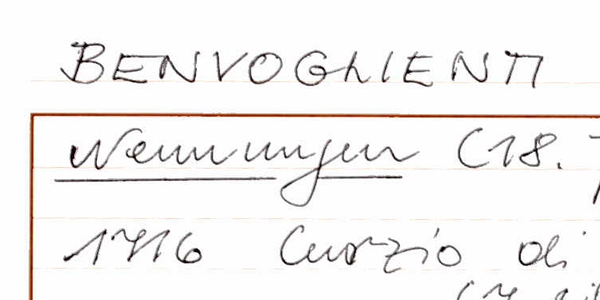 BENVOGLIENTI
Nennungen (18.
1716 Curzio di